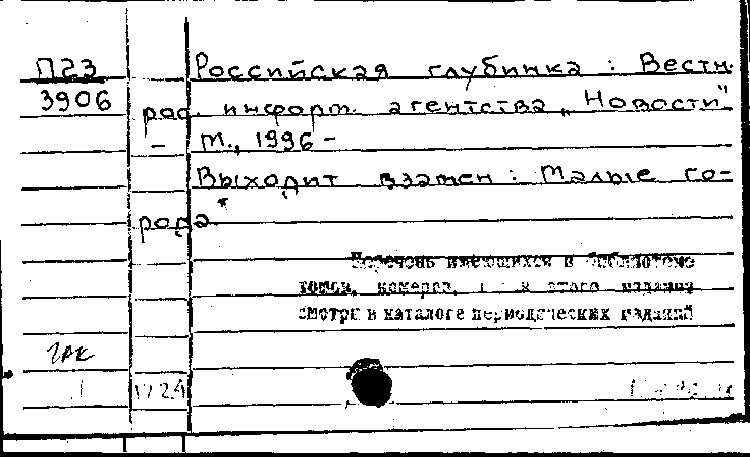 П23 Российская глубинка : Вестн.
3906 рос. информ. агентства „Новости"
– М., 1996 –
Выходит взамен : Малые го-
рода
Перечень имеющихся в библиотеке
томов, номеров, этого издания
смотри в каталоге периодических изданий
ГАК
1724